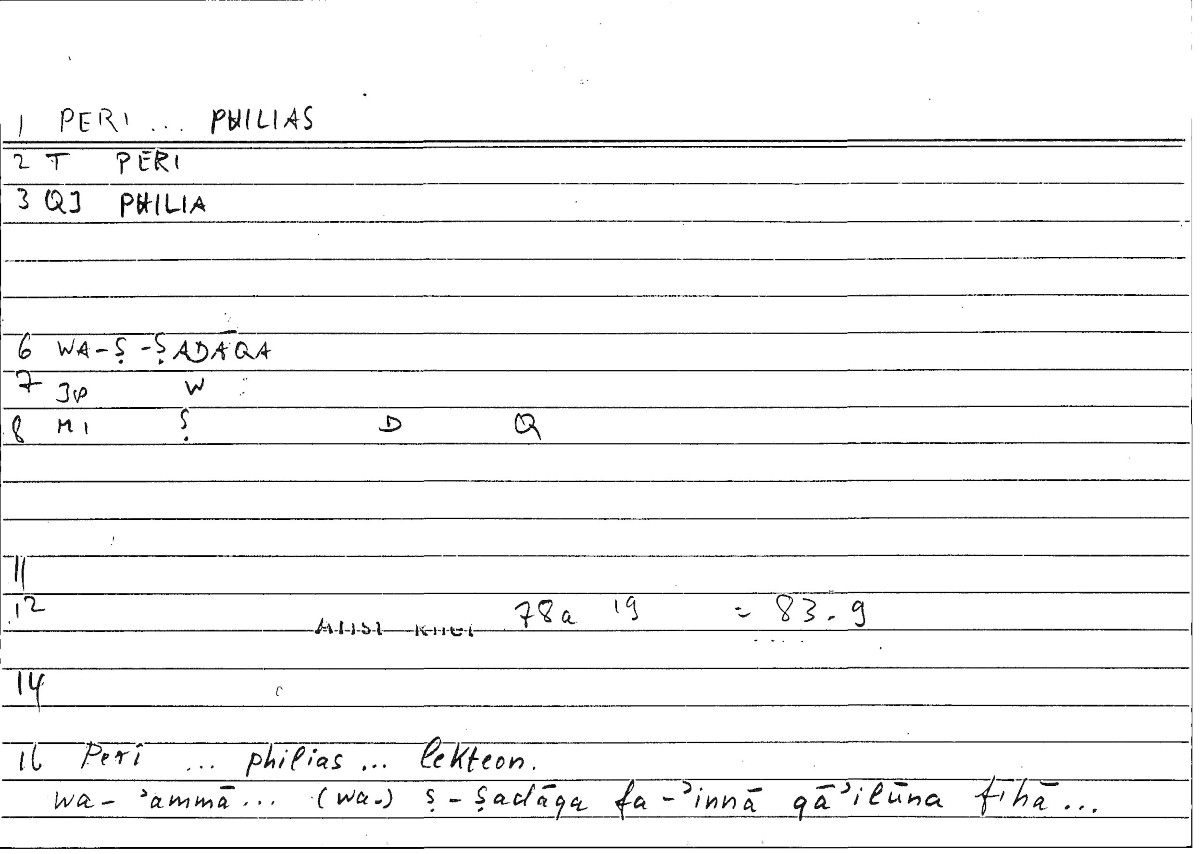 1 PERI ... PHILIAS
2 T PERI
3 QJ PHILIA
6 WA-Ṣ-ṢADĀQA
7 Jφ W
8 MI Ṣ D Q
11
12 78a 19 = 83.9
14
16 Perì ... philias ... lekteon.
wa-ʾammā... (wa-) ṣ-ṣadāqa fa-ʾinnā qāʾilūna fīhā...